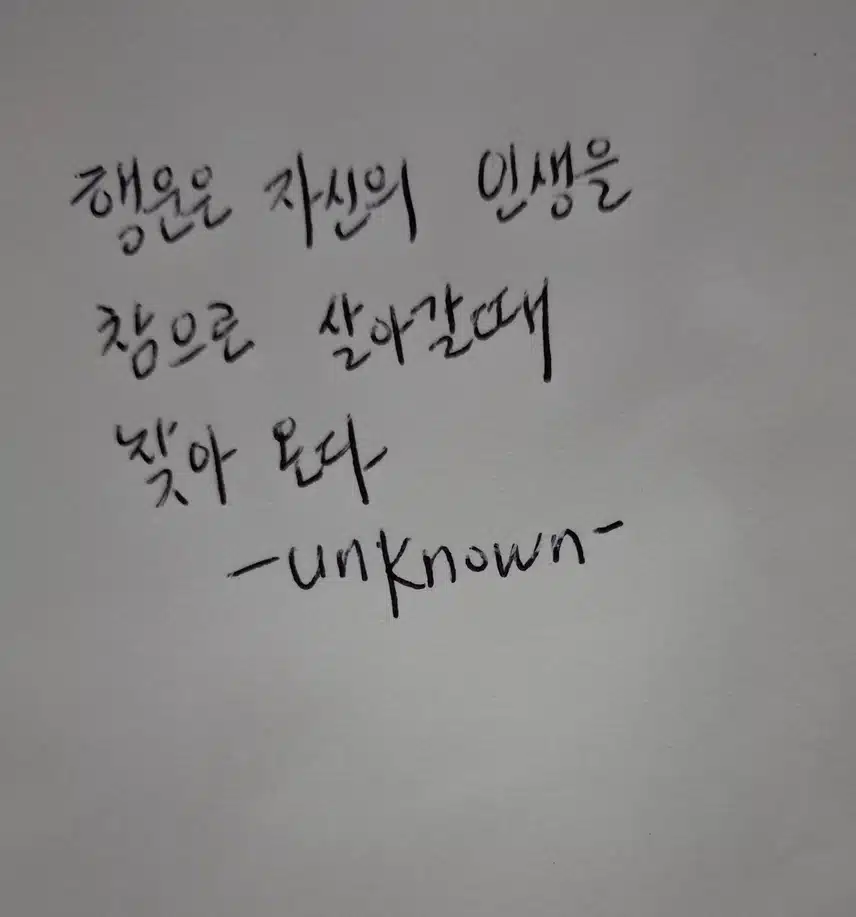 행운은 자신의 인생을
참으로 살아갈때
찾아 온다
-unknown-